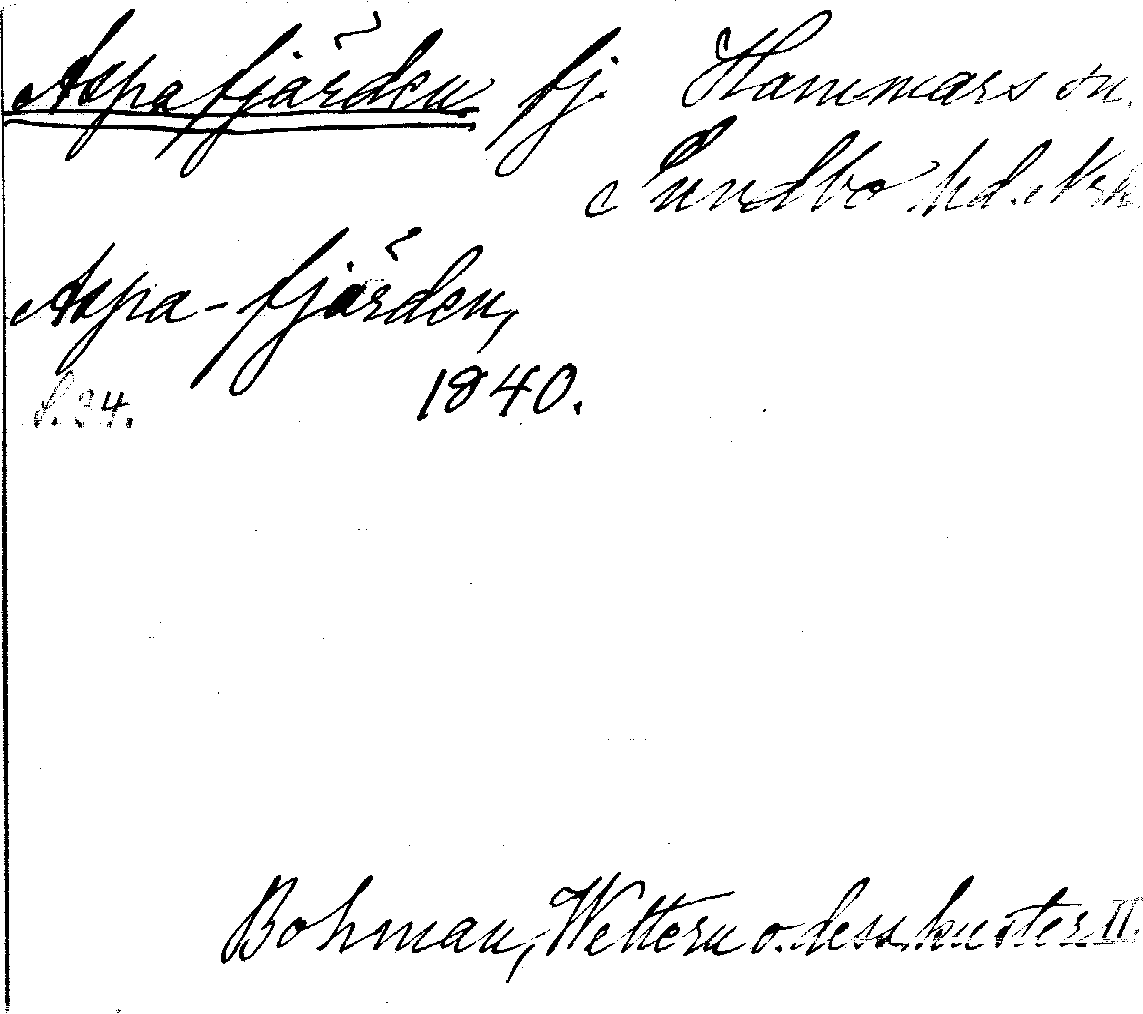 Aspafjärden fj. Hammars sn.
Sundbo hd. Nrk
Aspa-fjärden,
S. 34. 1840.
Bohman, Wettern o. dess kuster II.